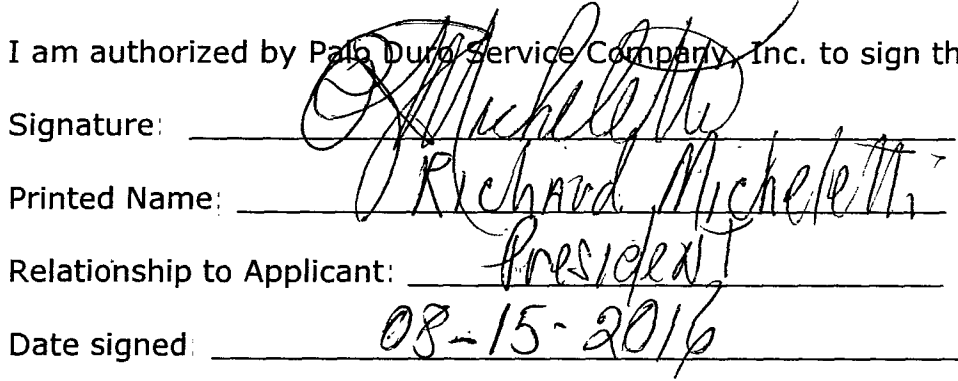 I am authorized by Palo Duro Service Company, Inc. to sign th
Signature: RMicheletti
Printed Name: Richard Micheletti
Relationship to Applicant: President
Date signed: 08-15-2016